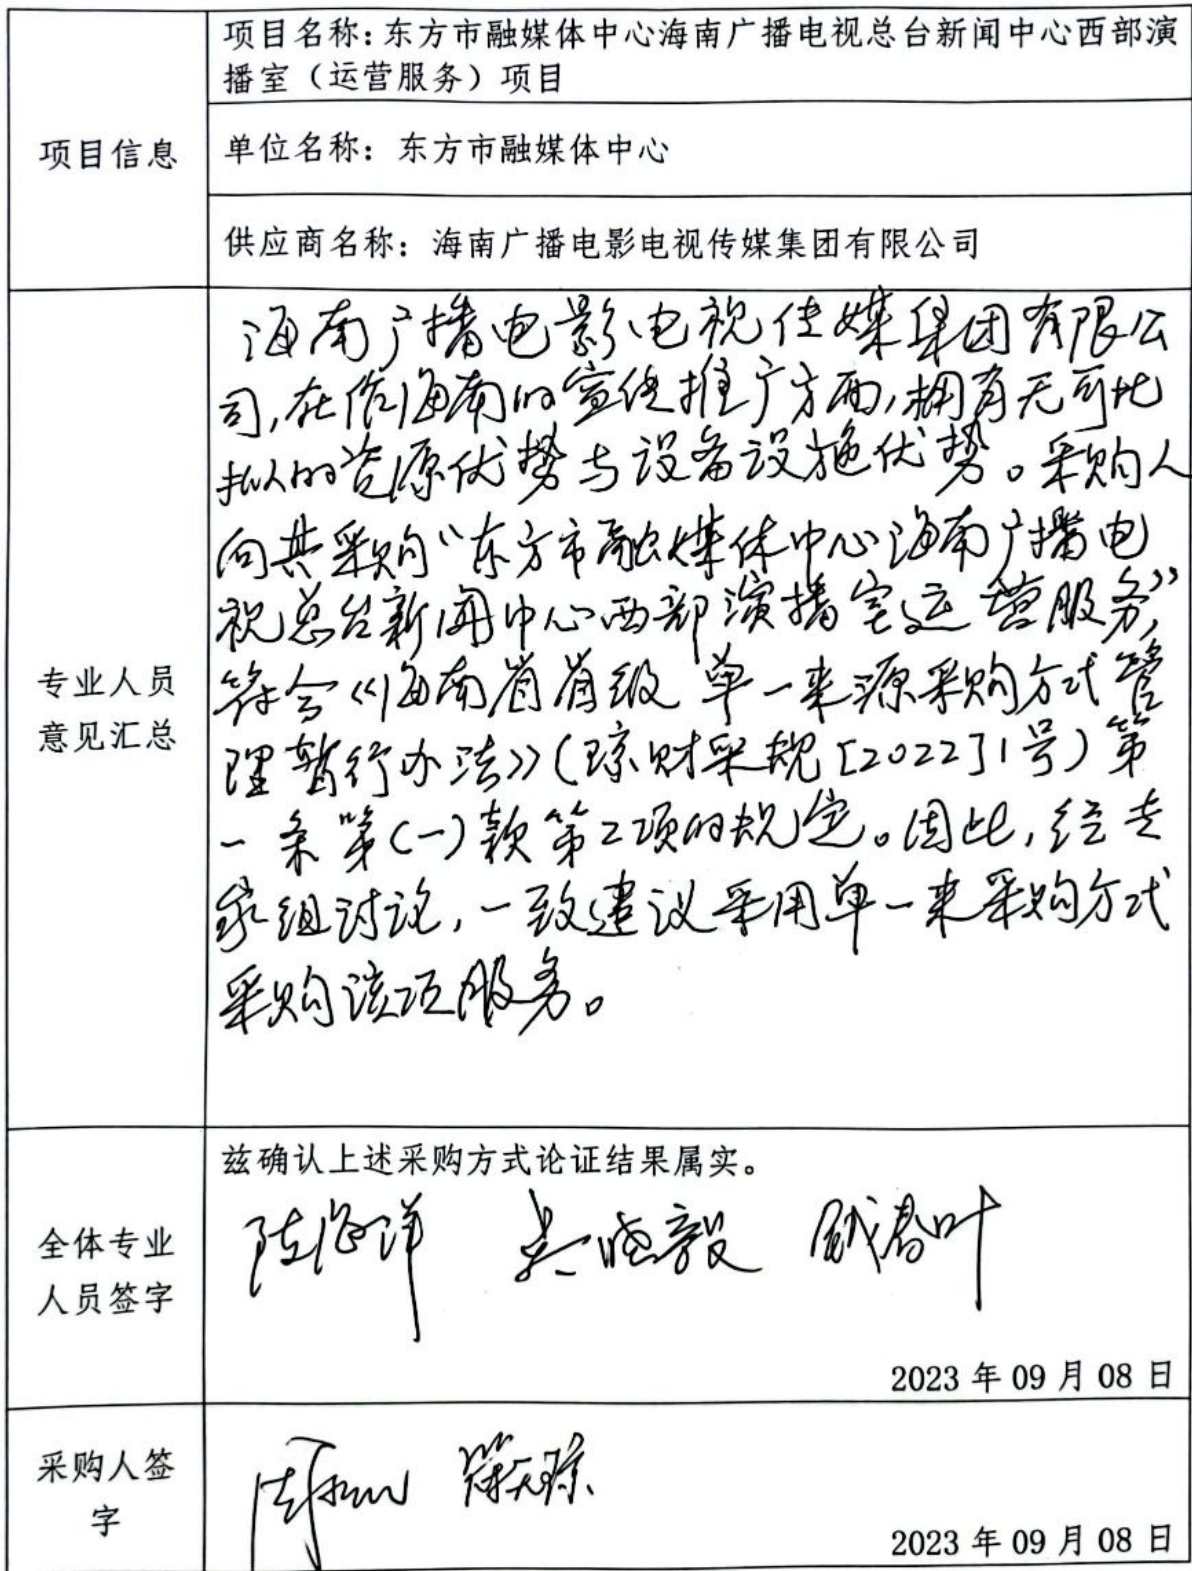 项目信息
项目名称：东方市融媒体中心海南广播电视总台新闻中心西部演
播室（运营服务）项目
单位名称：东方市融媒体中心
供应商名称：海南广播电影电视传媒集团有限公司
专业人员
意见汇总
海南广播电影电视传媒集团有限公
司,在作海南的宣传推广方面,拥有无可比
拟的资源优势与设备设施优势。采购人
向其采购“东方市融媒体中心海南广播电
视总台新闻中心西部演播室运营服务”,
符合《海南省省级单一来源采购方式管
理暂行办法》(琼财采规[2022]1号)第
一条第(一)款第2项的规定。因此,经专
家组讨论,一致建议采用单一来采购方式
采购该项服务。
全体专业
人员签字
兹确认上述采购方式论证结果属实。
陆海洋 吴晓毅 钱春叶
2023 年 09 月 08 日
采购人签
字
2023 年 09 月 08 日